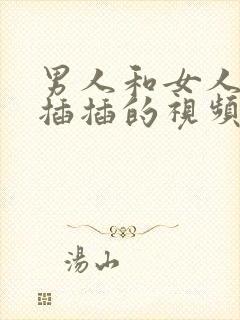 男人和女人
插插的視頻
湯山